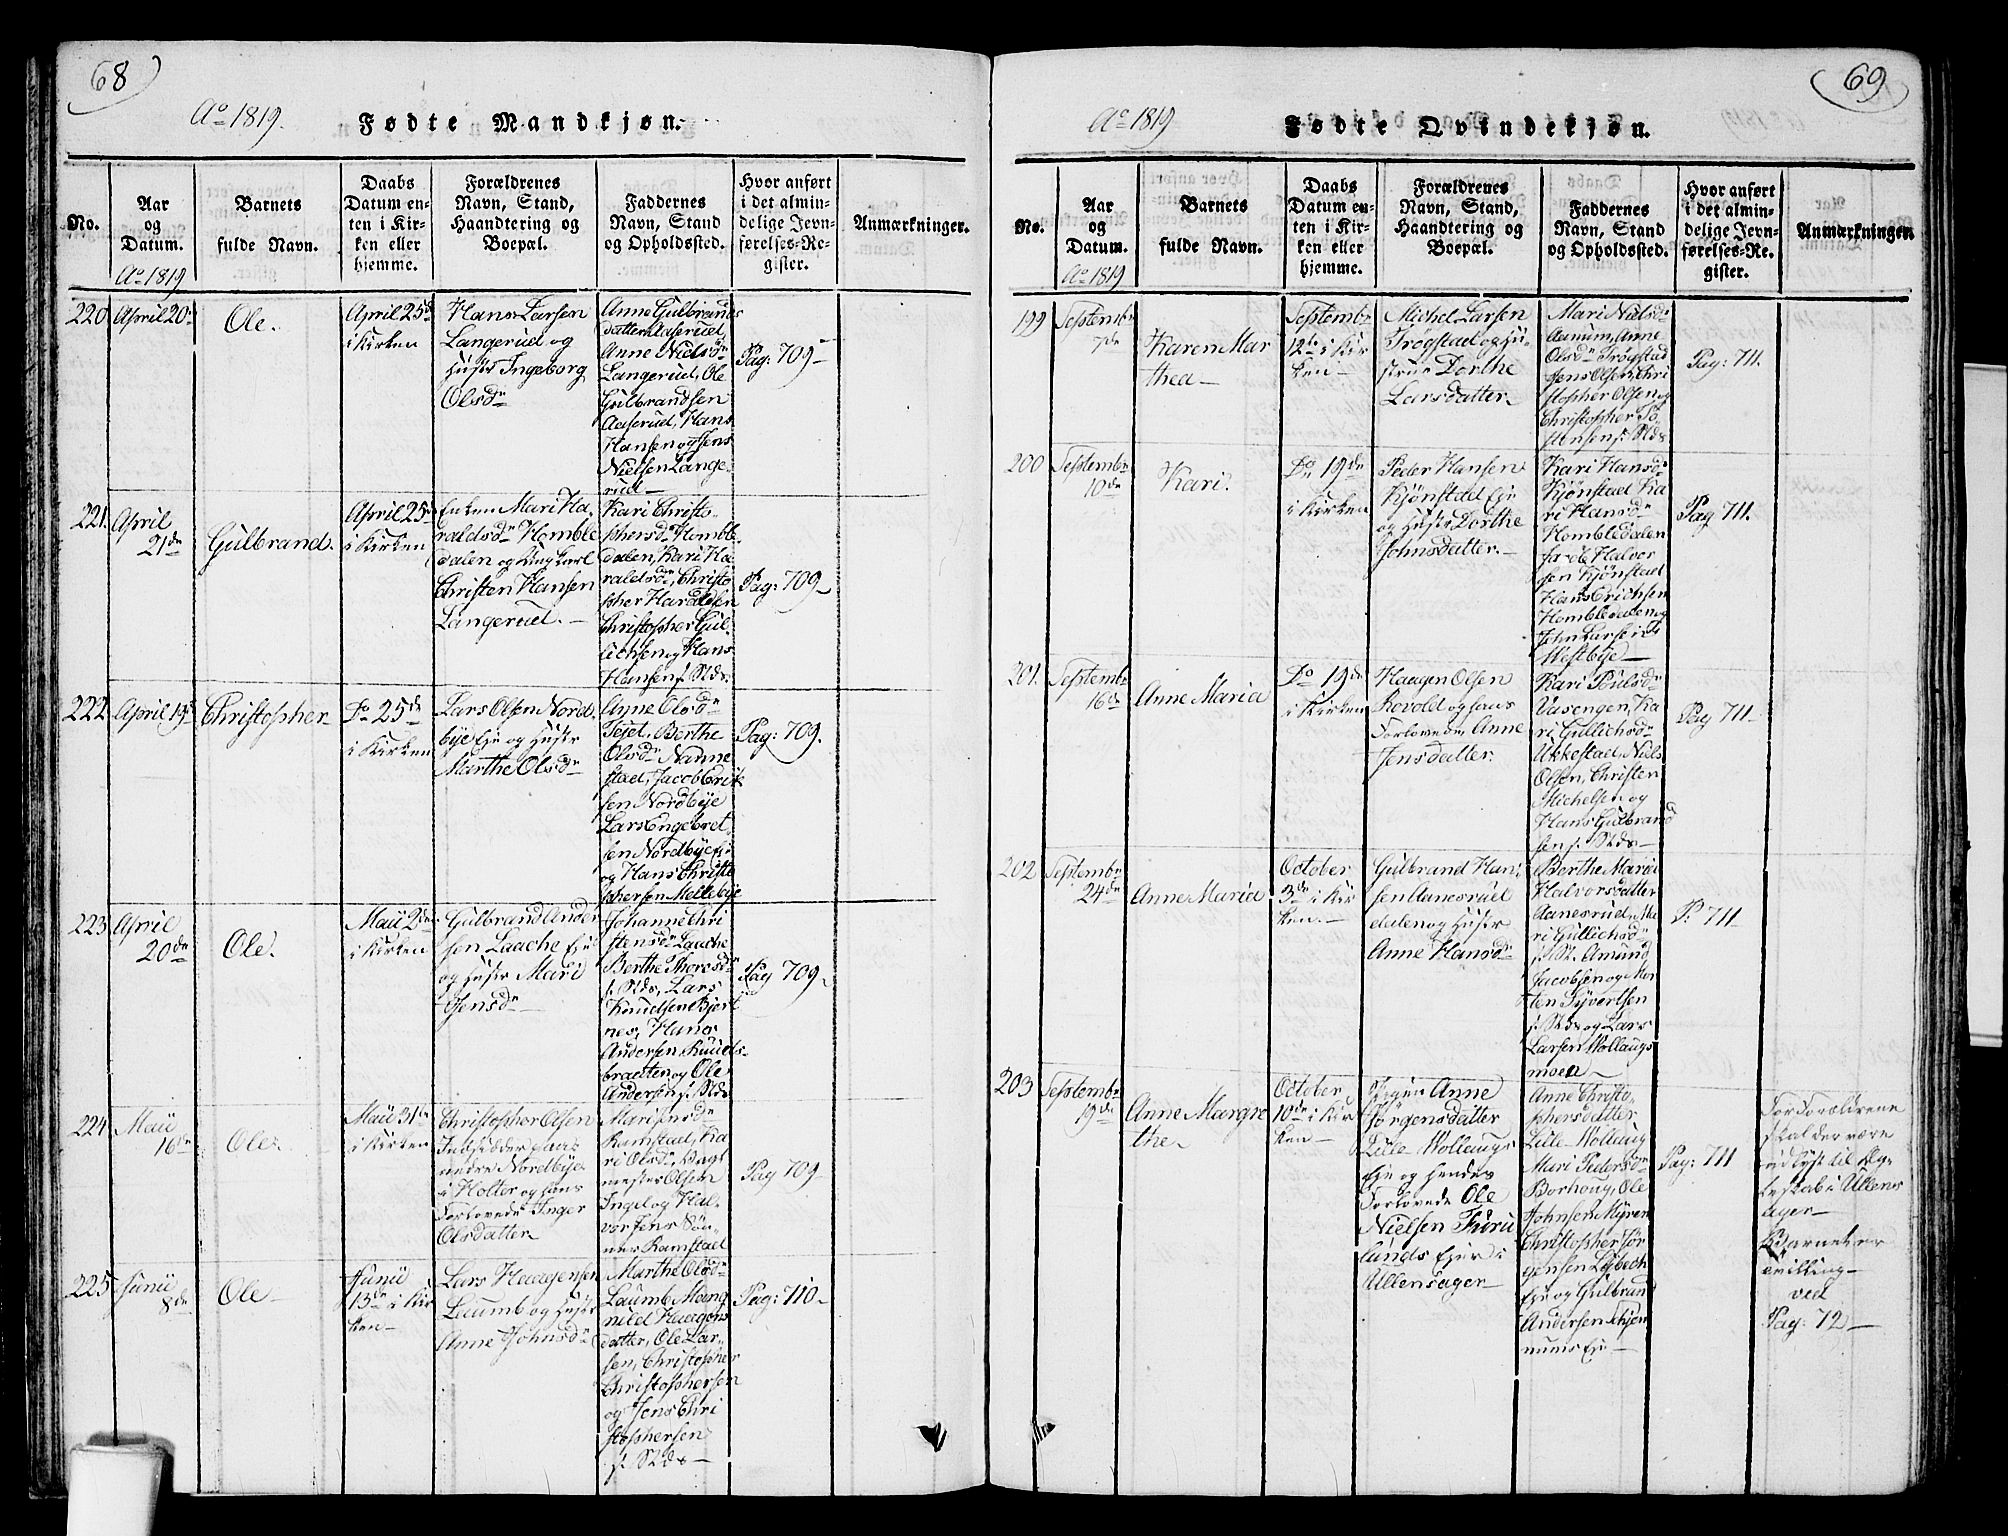 68
Aº 1819.
Fødte Mandkjøn.
No.
Aar
og
Datum.
Aº 1819
Barnets
fulde Navn.
Daabs
Datum en-
ten i Kir-
ken eller
hjemme.
Forældrenes
Navn, Stand,
Haandtering og
Boepæl.
Faddernes
Navn, Stand
og Opholdssted.
Hvor anført
i det almin-
delige Jevn-
førelses-Re-
gister.
Anmærkninger.
220
April 20de
Ole.
April 25de
i Kirken
Hans Larsen
Langerud og
Hustr Ingeborg
Olsdr
Anne Gulbrands
datter Aaserud,
Anne Nielsdr
Langerud, Ole
Gulbrandsen
Aaserud, Hans
Hansen og Jens
Nielsen Lange-
rud
Pag: 709
221.
April
21de
Gulbrand.
April 25de
i Kirken
Enken Mari Ha
raldsdr Homble
dalen og Ungkarl
Christen Hansen
Langerud.
Kari Christo-
phersdr Homble
dalen, Kari Ha
raldsdr, Christo
pher Haraldsen
Christopher Gul
lichsen og Hans
Hansen
Pag: 709
222
April 19de
Christopher
Do 25de
i Kirken
Lars Olsen Nord
bye Eje og Hustr
Marthe Olsdr
Agne Olsdr
Tejet, Berthe
Olsdr Nanne
stad, Jacob Erik
sen Nordbye
Lars Engebret
sen Nordbye Eje
og Hans Christo
phersen Mellebye
Pag: 709.
223
April
20de
Ole.
Maii 2den
i Kirken
Gulbrand Ander
sen Laache Eje
og Hustr Mari
Jensdr
Johanne Chri
stensdr Laache
Berthe Thoresdr
Lars
Knudsen Bjert
nes, Hans
Andersen Knuds-
braaten og Ole
Andersen
Pag 709
224
Maii
16de
Ole
Maii 31te
i Kirken
Christopher Olsen
Indsidder paa
nedre Nordbye
i Holter og hans
Forlovede Inger
Olsdatter
Mari Jensdr
Ramstad, Ka
ri Olsdr, Vagt
mester Olsen
Ingel og Hal-
vor Jens Søn-
ner Ramstad
Pag 709
225
Junii
8de
Ole
Junii
13de i Kir
ken
Lars Haagensen
Laumb og Hustr
Anne Johnsdr
Marthe Olsdr
Laumb Mang
nild Haagens
datter, Ole Lar-
sen, Christopher
Christophersen
og Jens Chri
stophersen
Pag: 710
69
Aº 1819
Fødte Qvindekjøn.
No.
Aar
og
Datum.
Aº 1819
Barnets
fulde Navn.
Daabs
Datum en-
ten i Kir-
ken eller
hjemme.
Forældrenes
Navn, Stand,
Haandtering og
Boepæl.
Faddernes
Navn, Stand
og Opholdssted.
Hvor anført
i det almin-
delige Jevn-
førelses-Re-
gister.
Anmærkninger
199
Septembr
7de
Karen Mar
thea
Septembr
12te i Kir
ken
Michel Larsen
Trogstad og Hu-
strue Dorthe
Larsdatter
Mari Nielsdr
Aamum, Anne
Olsdr Trøgstad
Jens Olsen, Chri
stopher Olsen og
Christopher Jo
hansen
Pag: 711.
200
Septembr
10de
Kari.
Do 19de
i Kirken
Peder Hansen
Kjönstad Eje
og Hustr Dorthe
Johnsdatter
Kari Hansdr
Kjönstad Ka
ri Hansdr
Hombledalen
Halvor
sen Kjönstad
Hans Erichsen
Hombledalen og
John Larsen
Westbye
Pag 711.
201.
Septembr
16de
Anne Maria
Do 19de
i Kirken
Haagen Olsen
Kovold og hans
Forlovede Anne
Jensdatter.
Kari Poulsdr
Vasengen, Ka
ri Gullichsdr
Ukkestad, Niels
Olsen, Christen
Michelsen og
Hans Gulbrand
sen
Pag 711
202
Septembr
24de
Anne Maria
October
3de i Kir
ken.
Gulbrand Han
sen Aanesrud
dalen og Hustr
Anne Hansdr
Berthe Maria
Halvorsdatter
Aanesrud, Ka
ri Gullichsdr
Amund
Jacobsen og Mor
ten Syvertsen
og Lars
Larsen Wollaugs
moen
P: 711
203
Septembr
19de
Anne Margre
the
October
10de i Kir
ken
Pigen Anne
Jörgensdatter
Lille Wollaug
Eje og hendes
Forlovede Ole
Nielsen Furu
lunds Ejer i
Ullensager
Anne Christo
phersdatter
Lille Wollaug
Mari Pedersdr
Borhoug, Ole
Johnsen Myren
Christopher Jör
gensen Løbech
Eje og Gulbran
Andersen
Eje
Pag: 711
For Forældrene
skal der være
udlyst til Æg-
teskab i Ullens
ager
Barnet er
tvilling
ved
Pag: 72